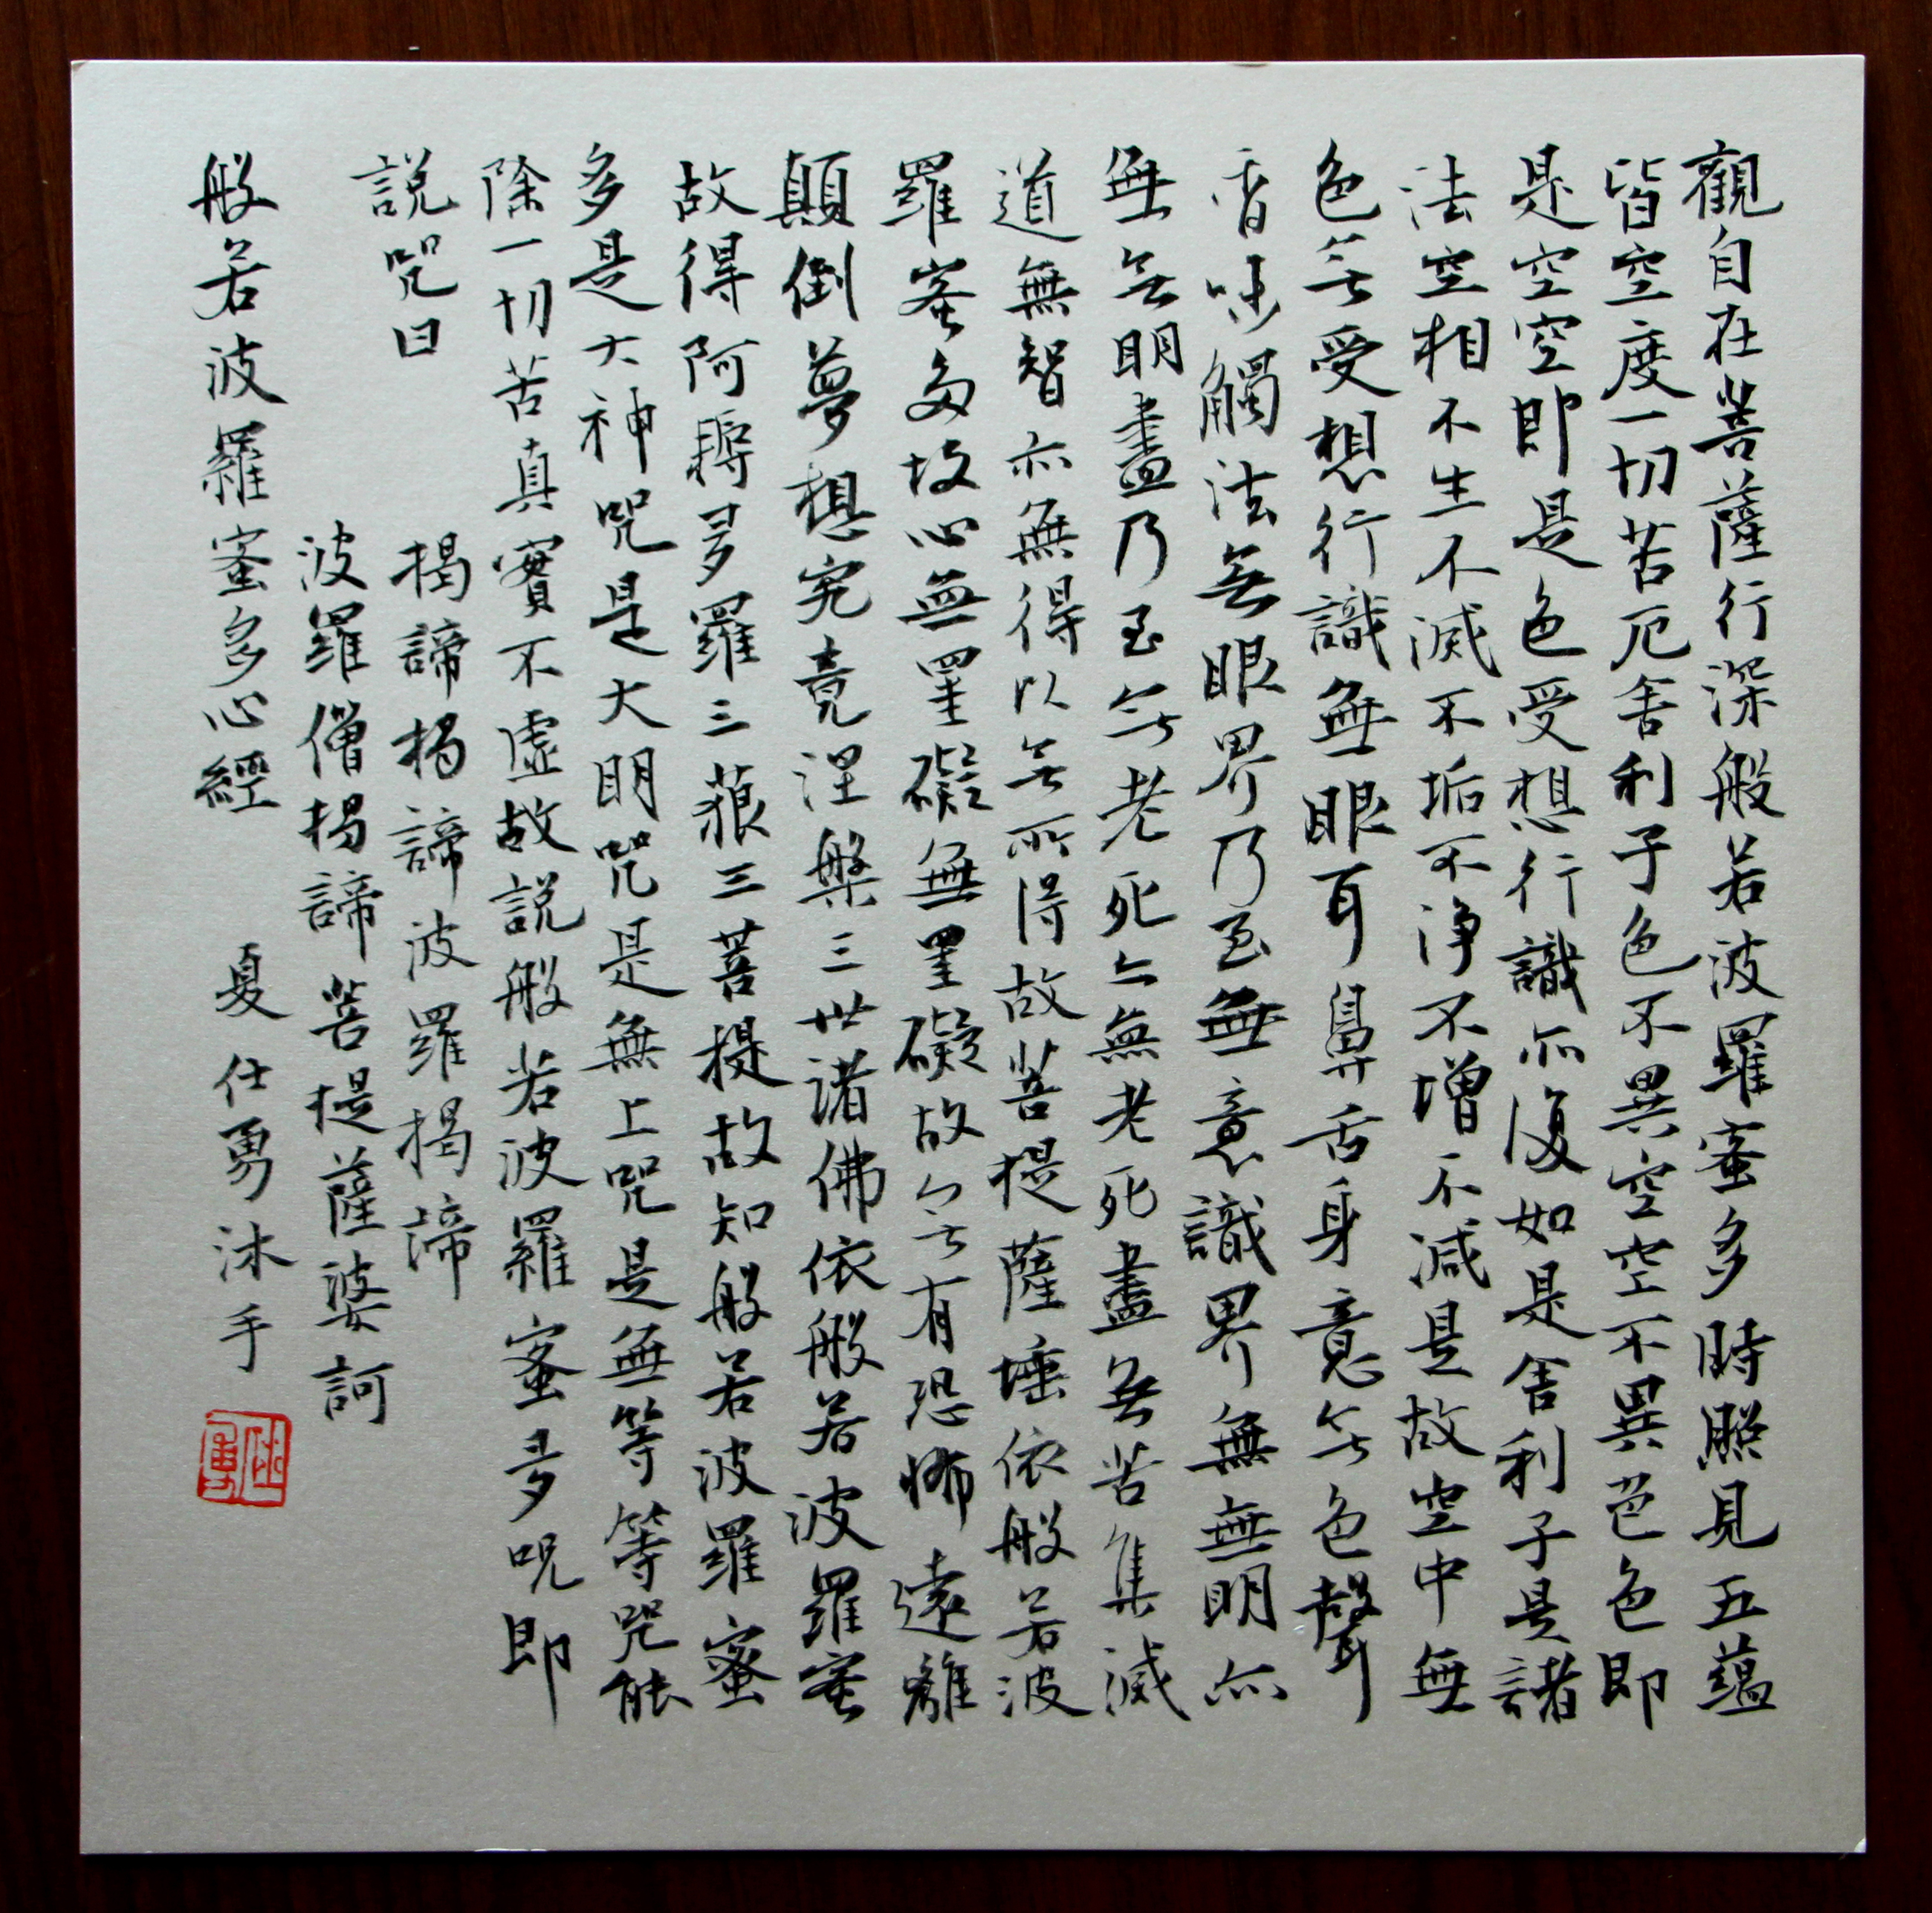 觀自在菩薩行深般若波羅蜜多時照見五蘊
皆空度一切苦厄舍利子色不異空空不異色色即
是空空即是色受想行識亦復如是舍利子是諸
法空相不生不滅不垢不淨不增不減是故空中無
色無受想行識無眼耳鼻舌身意無色聲
香味觸法無眼界乃至無意識界無無明亦
無無明盡乃至無老死亦無老死盡無苦集滅
道無智亦無得以無所得故菩提薩埵依般若波
羅蜜多故心無罣礙無罣礙故無有恐怖遠離
顛倒夢想究竟涅槃三世諸佛依般若波羅蜜
故得阿耨多羅三藐三菩提故知般若波羅蜜
多是大神咒是大明咒是無上咒是無等等咒能
除一切苦真實不虛故說般若波羅蜜多咒即
說咒曰
揭諦揭諦波羅揭諦
波羅僧揭諦菩提薩婆訶
般若波羅蜜多心經 夏仕勇沐手
仕勇